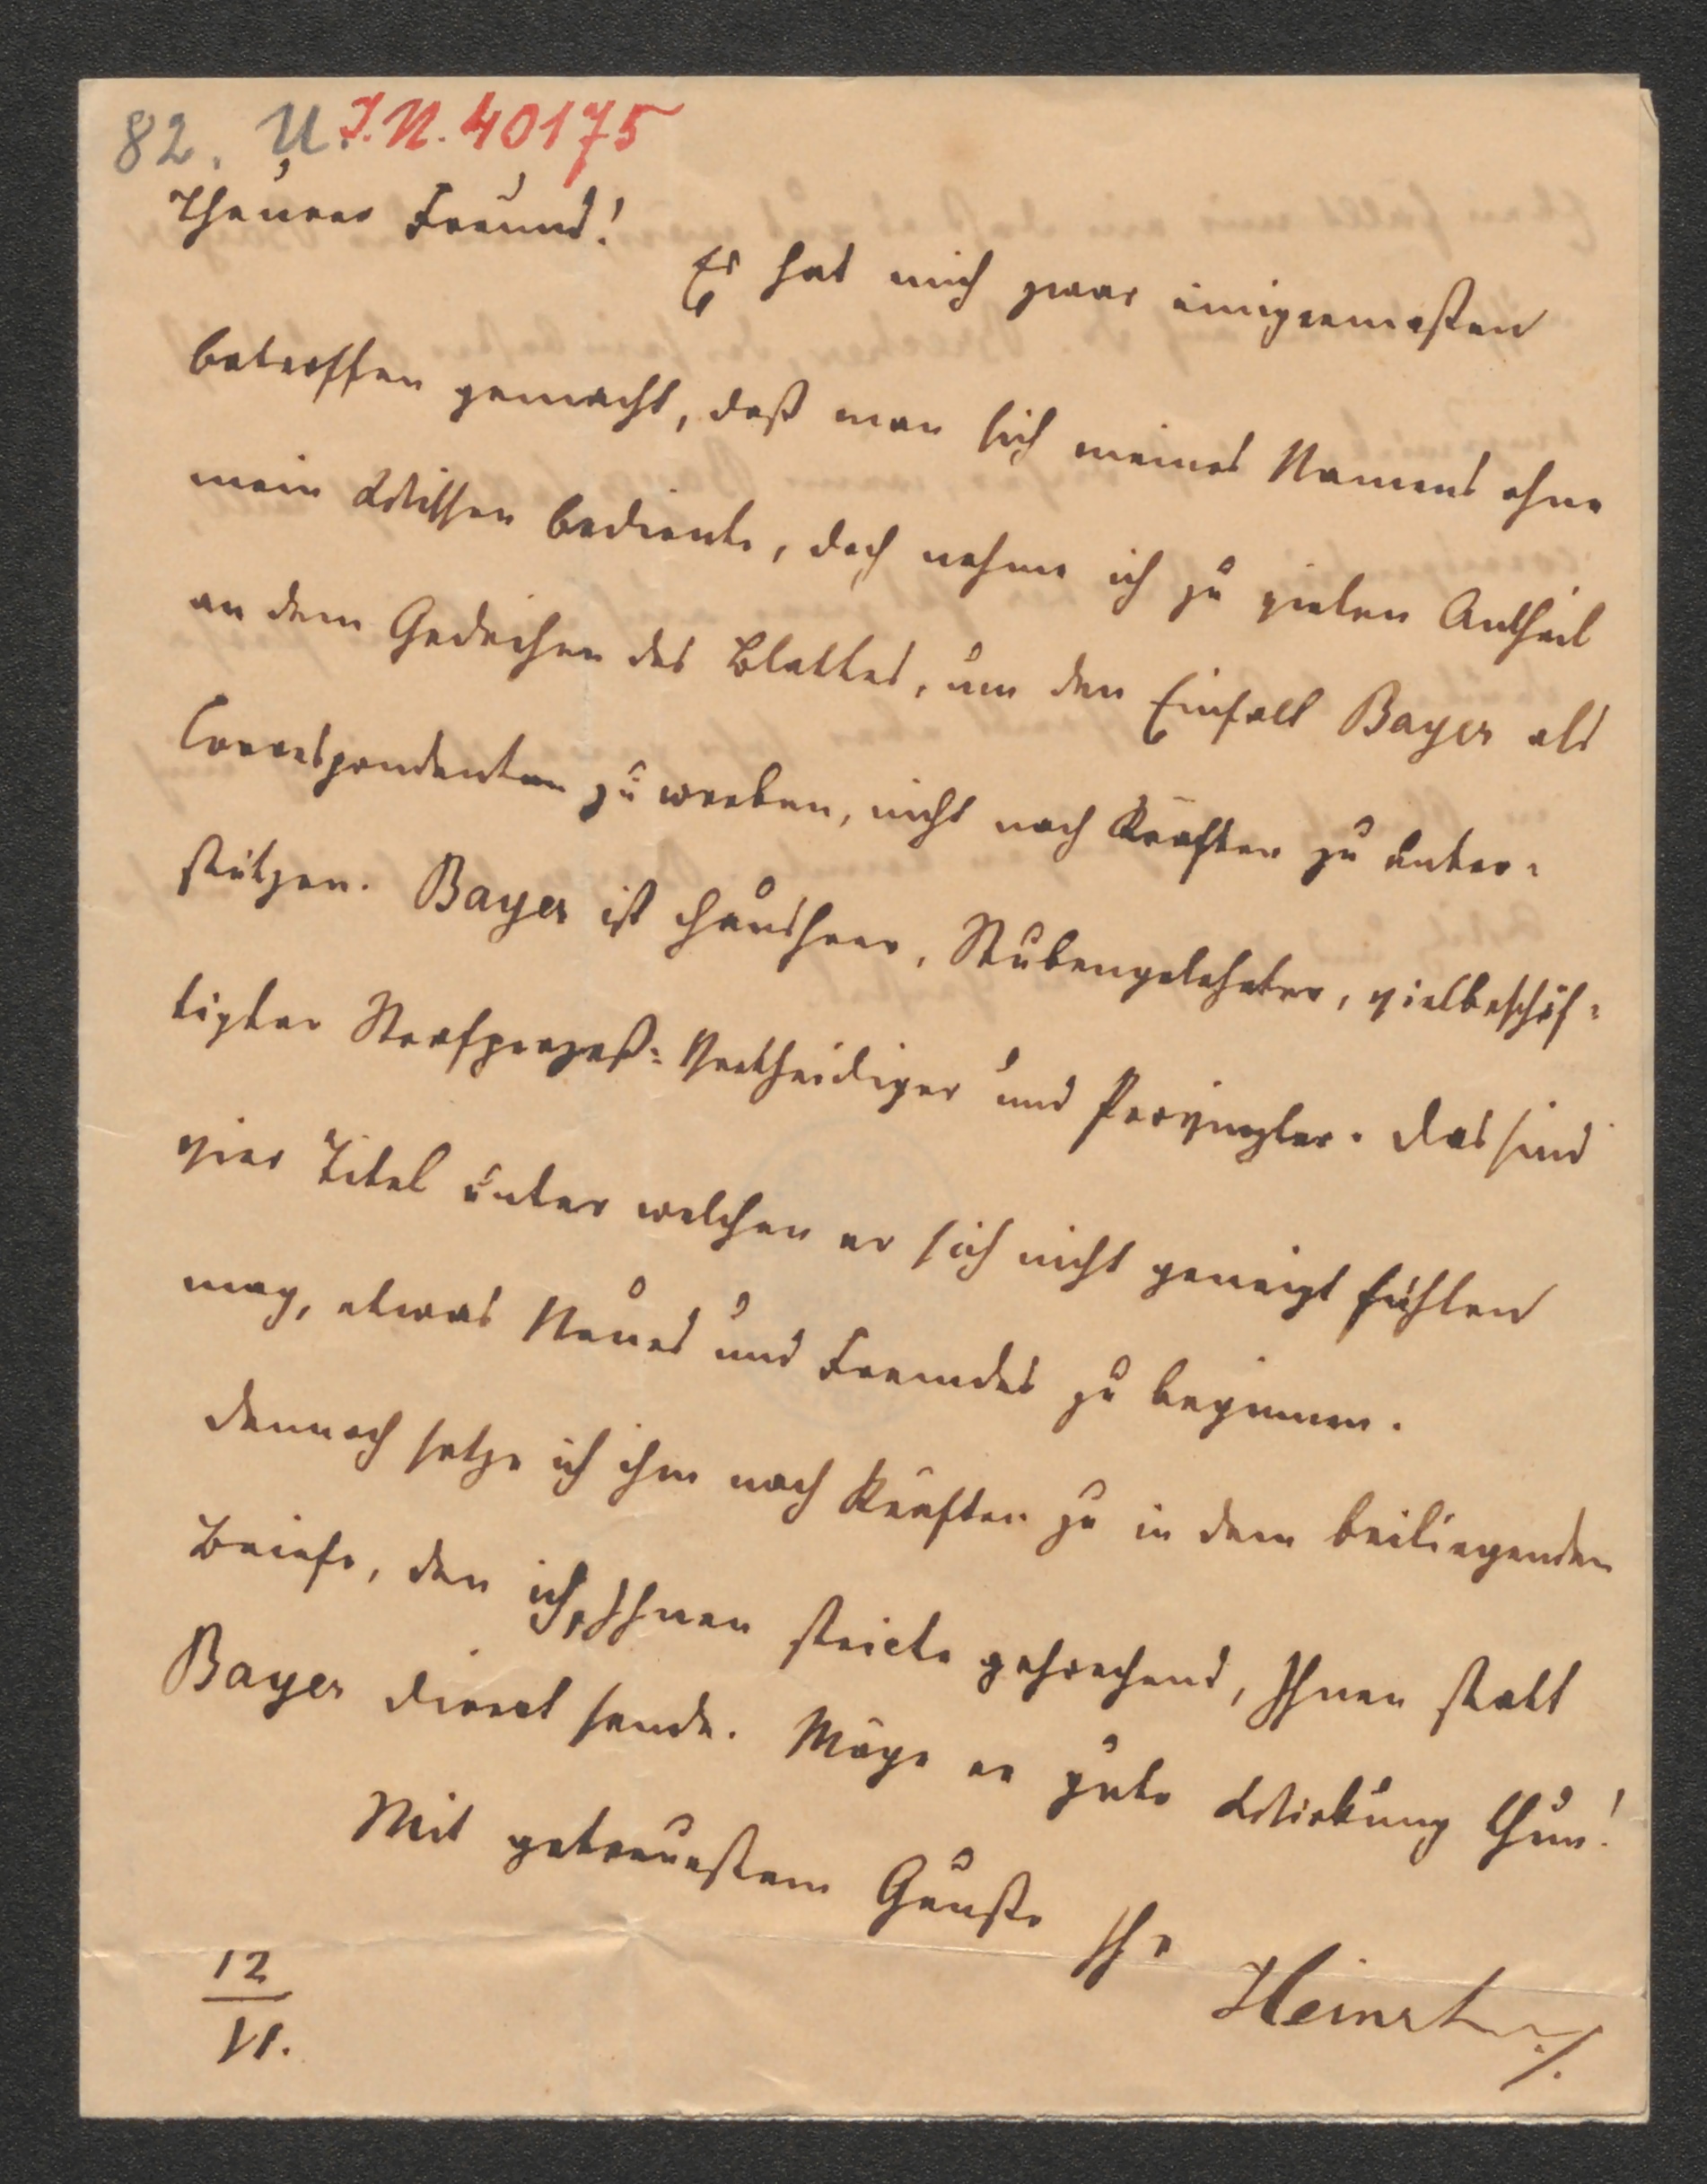 82. U. I.N. 40175
Theurer Freund!
Es hat mich zwar einigermaßen
betroffen gemacht, daß man sich meines Namens ohne
mein Wissen bediente, doch nehme ich zu vielen Antheil
an dem Gedeihen des Blattes, um den Einfall Bayer als
Correspondenten zu werben, nicht nach Kräften zu unter-
stützen. Bayer ist Hausherr, Stubengelehrter, vielbeschäf-
tigter Strafprozeß-Vertheidiger und Provinzler. Das sind
vier Titel unter welchen er sich nicht geneigt fühlen
mag, etwas Neues und Fremdes zu beginnen.
Dennoch setze ich ihm nach Kräften zu in dem beiliegenden
Briefe, den ich, Ihnen stricte gehorchend, Ihnen statt
Bayer direct sende. Möge er gute Wirkung thun!
Mit getreuestem Gruße Ihr
12
VI.